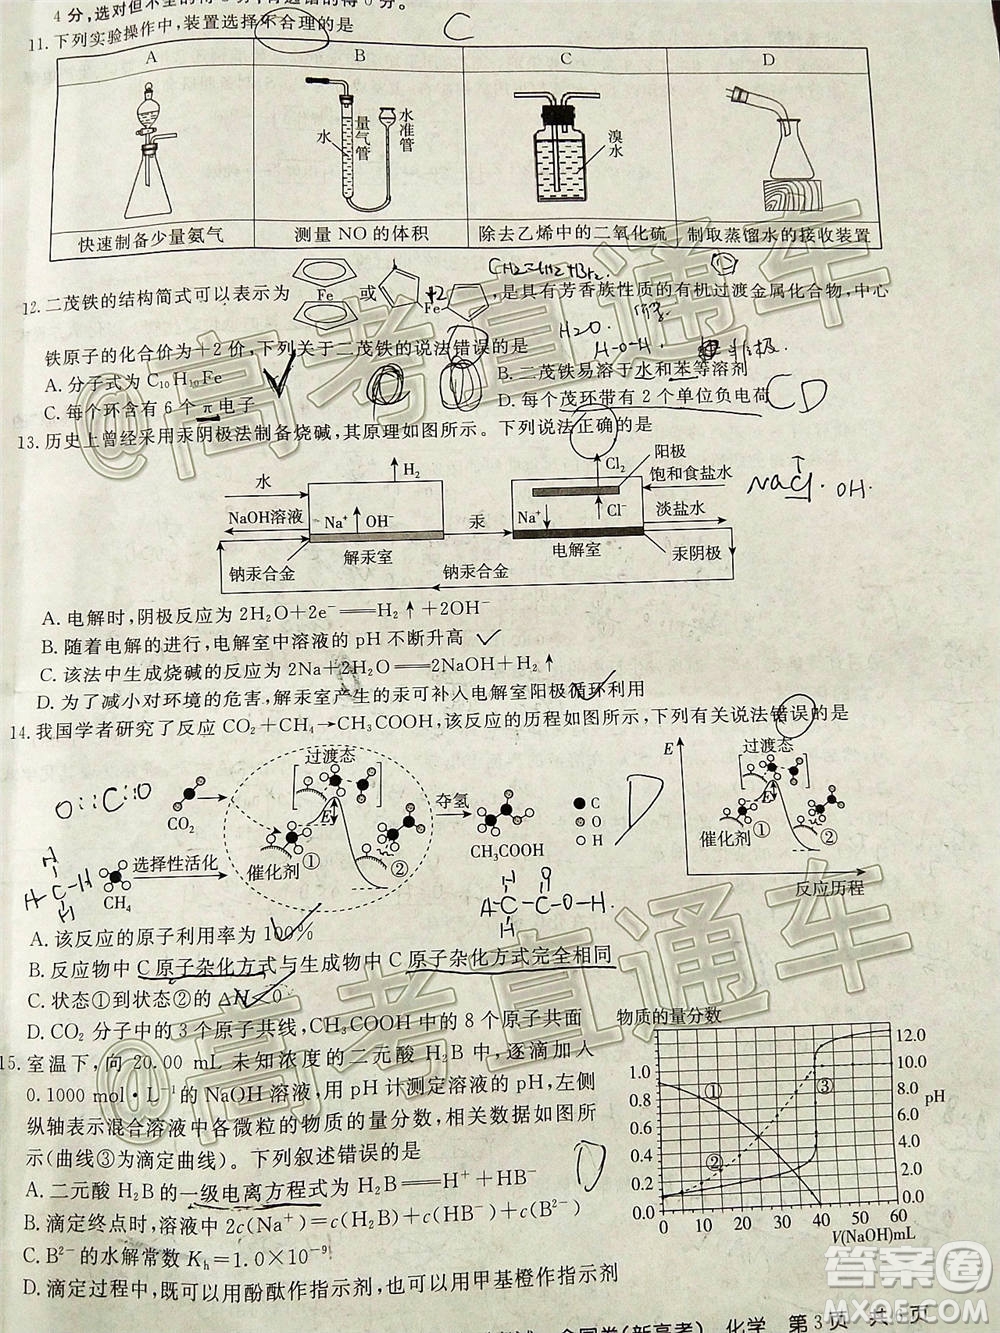 4分,选对但不全的得
11.下列实验操作中,装置选择不合理的是 C
A B C D
水 量气管 水准管 溴水
快速制备少量氨气 测量NO的体积 除去乙烯中的二氧化硫 制取蒸馏水的接收装置
CH2=CH2+Br2
12.二茂铁的结构简式可以表示为 Fe 或 Fe +2 ,是具有芳香族性质的有机过渡金属化合物,中心
铁原子的化合价为+2价,下列关于二茂铁的说法错误的是 H2O
H-O-H 非极
A.分子式为C₁₀H₁₀Fe B.二茂铁易溶于水和苯等溶剂
C.每个环含有6个π电子 D.每个茂环带有2个单位负电荷 CD
13.历史上曾经采用汞阴极法制备烧碱,其原理如图所示。下列说法正确的是
水 H₂ Cl₂ 阳极 饱和食盐水 NaCl OH
NaOH溶液 Na⁺ OH⁻ 汞 Na⁺ Cl⁻ 淡盐水
钠汞合金 解汞室 电解室 汞阴极
钠汞合金
A.电解时,阴极反应为2H₂O+2e⁻══H₂↑+2OH⁻
B.随着电解的进行,电解室中溶液的pH不断升高
C.该法中生成烧碱的反应为2Na+2H₂O══2NaOH+H₂↑
D.为了减小对环境的危害,解汞室产生的汞可补入电解室阳极循环利用
14.我国学者研究了反应CO₂+CH₄→CH₃COOH,该反应的历程如图所示,下列有关说法错误的是
过渡态 E 过渡态
O::C::O CO₂ E 夺氢 C D
催化剂 ① ② CH₃COOH O H 催化剂 ① ②
CH₄ 选择性活化 反应历程
A.该反应的原子利用率为100%
B.反应物中C原子杂化方式与生成物中C原子杂化方式完全相同
C.状态①到状态②的ΔH<0
D.CO₂分子中的3个原子共线,CH₃COOH中的8个原子共面
15.室温下,向20.00 mL未知浓度的二元酸H₂B中,逐滴加入
0.1000 mol·L⁻¹的NaOH溶液,用pH计测定溶液的pH,左侧
纵轴表示混合溶液中各微粒的物质的量分数,右侧纵轴表
示(曲线③为滴定曲线)。下列叙述错误的是 D
A.二元酸H₂B的一级电离方程式为H₂B══H⁺+HB⁻
B.滴定终点时,溶液中2c(Na⁺)=c(H₂B)+c(HB⁻)+c(B²⁻)
C.B²⁻的水解常数Kₕ=1.0×10⁻⁹
D.滴定过程中,既可以用酚酞作指示剂,也可以用甲基橙作指示剂
物质的量分数
12.0
10.0
8.0
6.0
4.0
2.0
0.0
pH
① ② ③
0 10 20 30 40 50 60
V(NaOH)mL
@高考直通车
@高考直通车
答案圈
MXQE.COM
全国卷(新高考) 化学 第3页 共6页